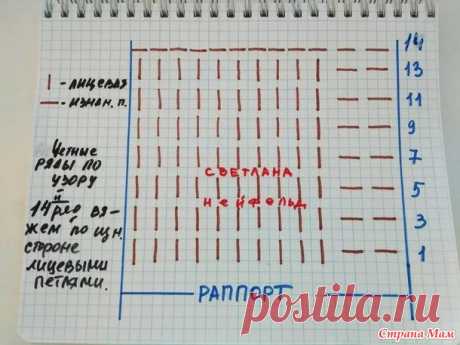 14
13
11
9
7
5
3
1
| - ЛИЦЕВАЯ
— - ИЗНАН. П.
Четные
РЯДЫ ПО
УЗОРУ
14й РЯД ВЯ-
ЖЕМ ПО ИЗН.
СТОРОНЕ
ЛИЦЕВЫМИ
ПЕТЛЯМИ.
СВЕТЛАНА
НЕЙФЕЛЬД
РАППОРТ
postila.ru
Страна Мам